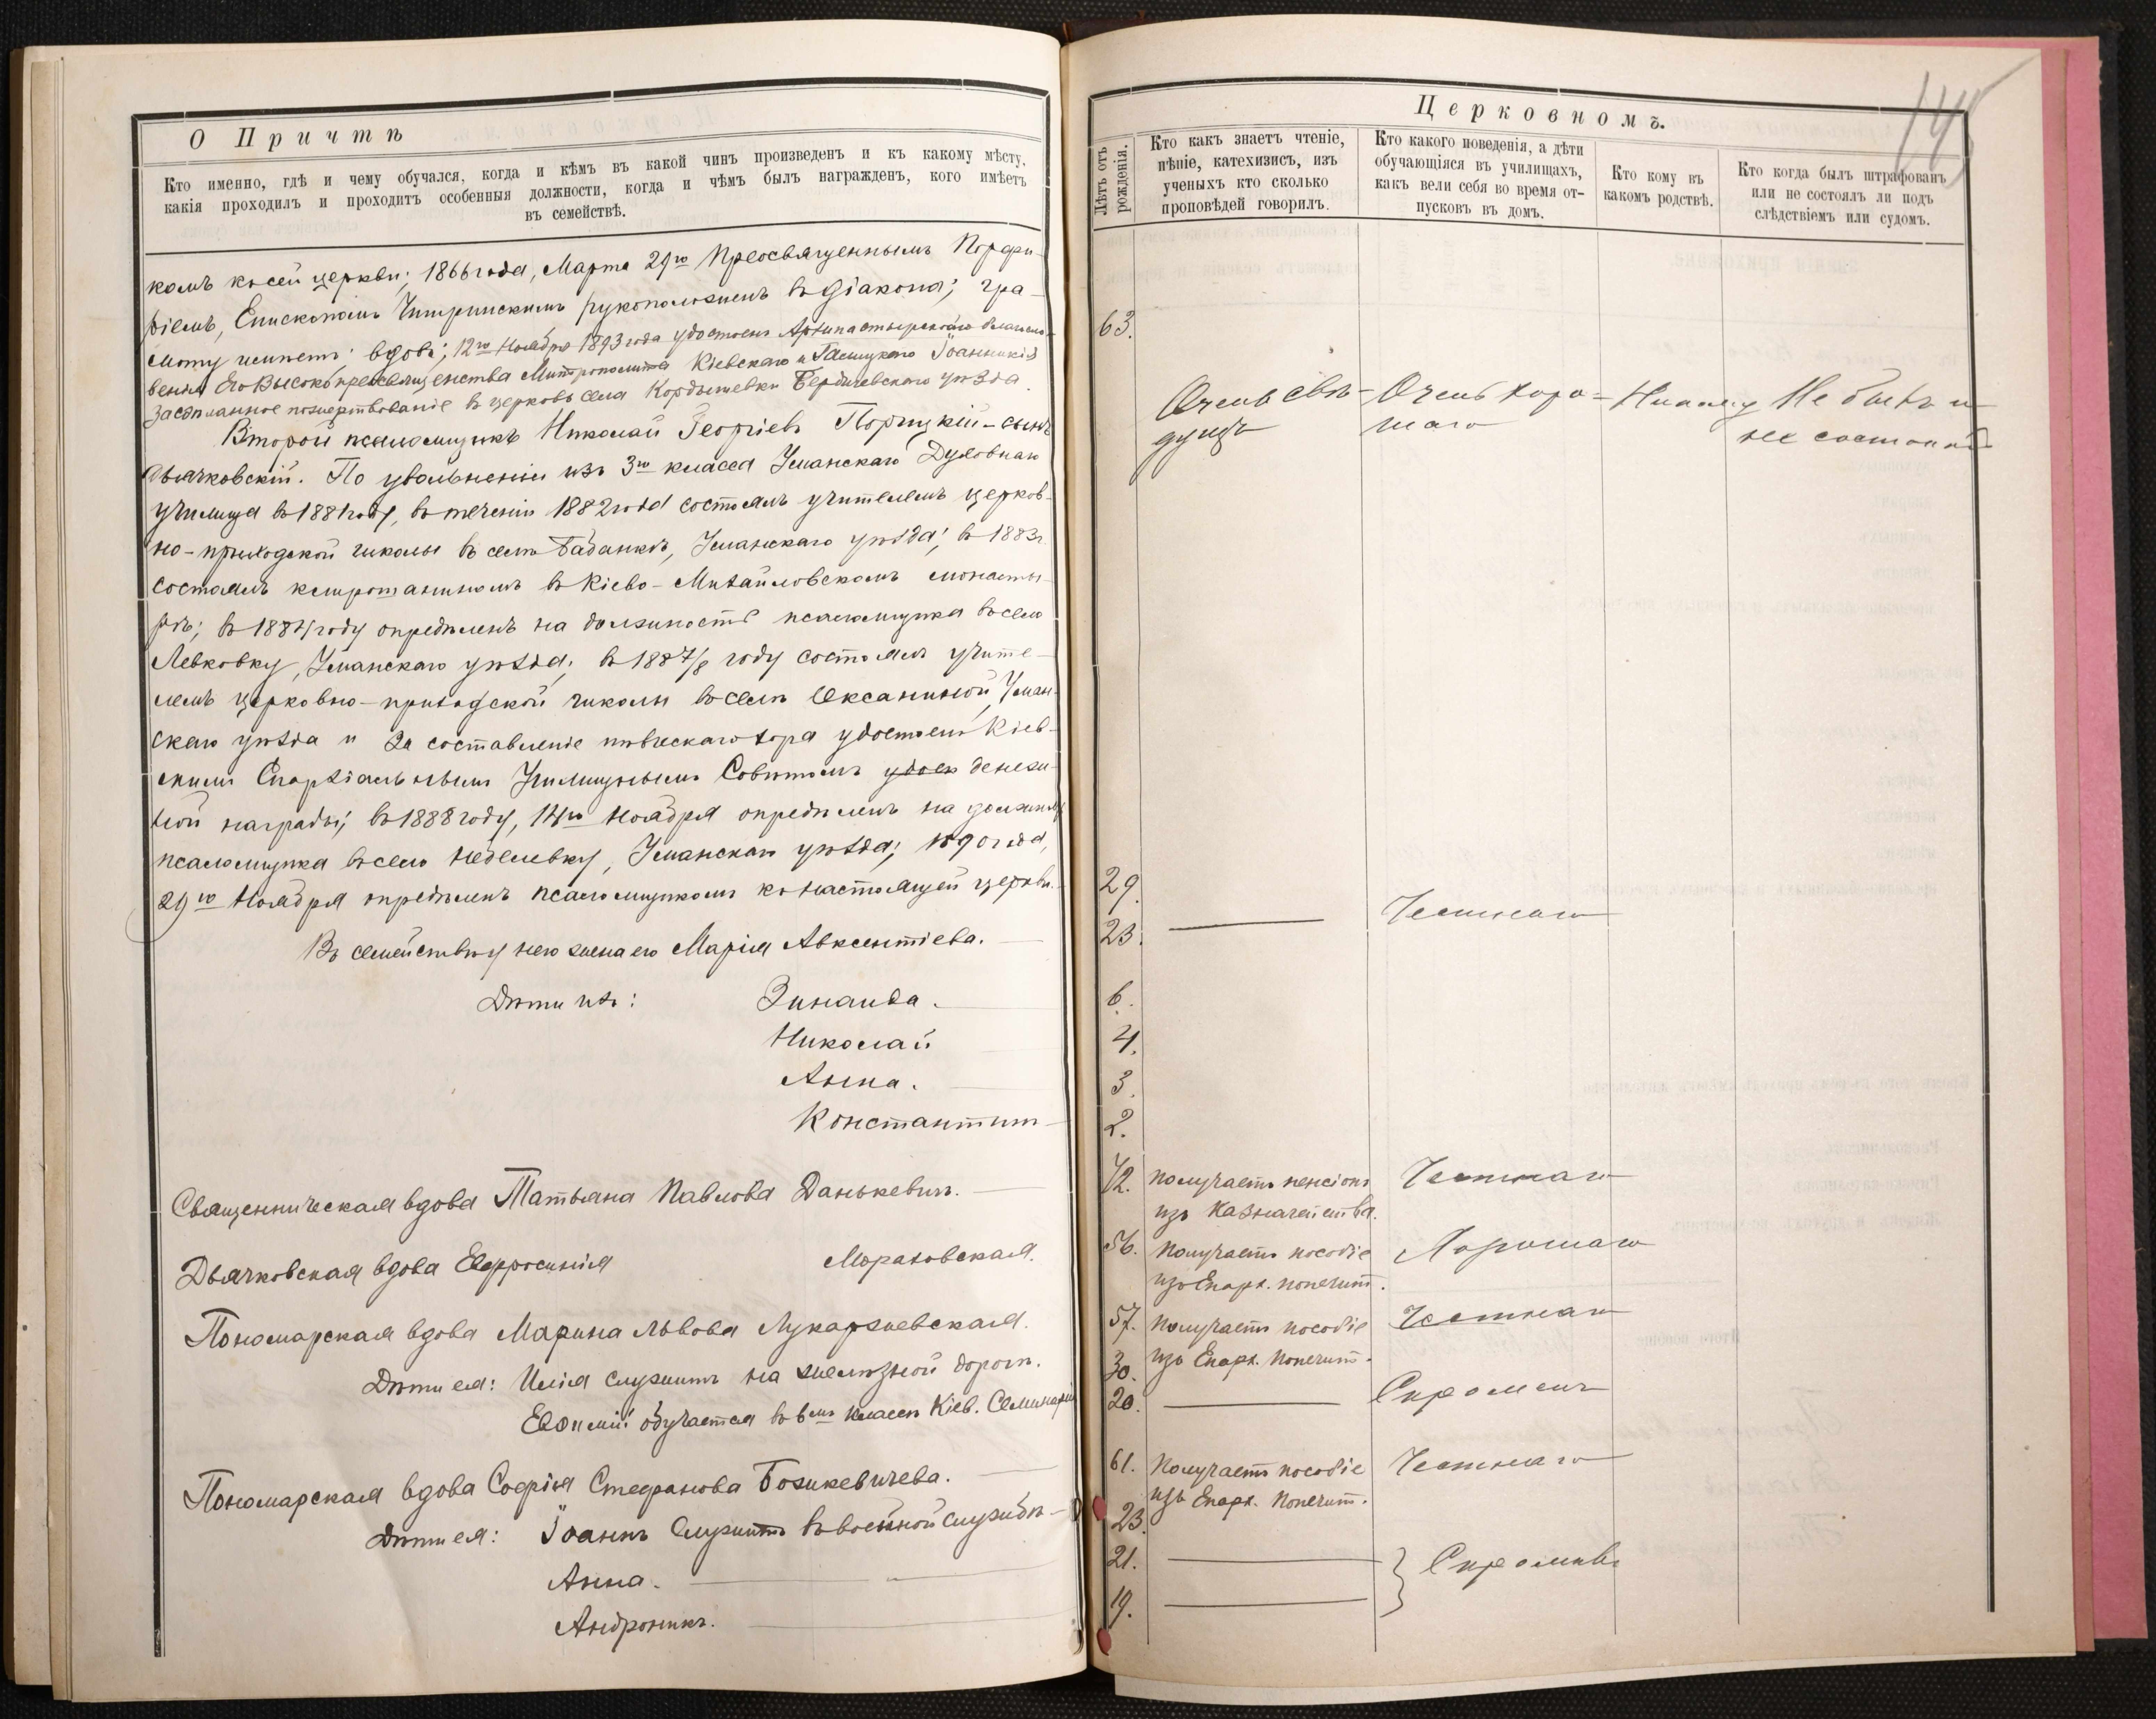 О Причтѣ
Кто именно, гдѣ и чему обучался, когда и кѣмъ въ какой чинъ произведенъ и къ какому мѣсту,
какія проходилъ и проходитъ особенныя должности, когда и чѣмъ былъ награжденъ, кого имѣетъ
въ семействѣ.
комъ къ сей церкви; 1866 года, Марта 29го Преосвященнымъ Порфи-
ріемъ, Епископомъ Чигиринскимъ рукоположенъ въ діакона; гра-
моту имѣетъ; вдовъ; 12го Ноября 1893 года удостоенъ Архипастырскаго благосло-
венія Его Высокопреосвященства Митрополита Кіевскаго и Галицкаго Іоанникія
за сдѣланное пожертвованіе въ церковь села Кордышевки Бердичевскаго уѣзда.
Второй псаломщикъ Николай Георгіевъ Поржцкій - сынъ
дьячковскій. По увольненіи изъ 3го класса Уманскаго Духовнаго
училища въ 1881 году, въ теченіи 1882 года состоялъ учителемъ церков-
но-приходской школы въ селѣ Бабанкѣ, Уманскаго уѣзда; въ 1883 г.
состоялъ клирошаниномъ въ Кіево-Михайловскомъ монасты-
рѣ; въ 1884 году опредѣленъ на должность псаломщика въ село
Левковку, Уманскаго уѣзда; въ 1887/8 году состоялъ учите-
лемъ церковно-приходской школы въ селѣ Оксаниной, Уман-
скаго уѣзда и за составленіе пѣвческаго хора удостоенъ Кіев-
скимъ Епархіальнымъ Училищнымъ Совѣтомъ удост денеж-
ной награды; въ 1888 году, 14го Ноября опредѣленъ на должность
псаломщика въ село Небелевку, Уманскаго уѣзда; 1890 года,
29го Ноября опредѣленъ псаломщикомъ къ настоящей церкви.
Въ семействѣ у него жена его Марія Авксентіева.
Дѣти ихъ: Зинаида.
Николай
Анна.
Константинъ
Священническая вдова Татьяна Павлова Данькевичъ.
Дьячковская вдова Евфросинія Мораховская.
Пономарская вдова Марина Львова Лукаржевская.
Дѣти ея: Илія служитъ на желѣзной дорогѣ.
Евѳимій обучается въ 6мъ классѣ Кіев. Семинаріи
Пономарская вдова Софія Стефанова Божкевичева.
Дѣти ея: Іоаннъ служитъ въ военной службѣ
Анна.
Андроникъ.
Церковномъ.
145
Лѣтъ отъ
рожденія.
Кто какъ знаетъ чтеніе,
пѣніе, катехизисъ, изъ
ученыхъ кто сколько
проповѣдей говорилъ.
Кто какого поведенія, а дѣти
обучающіяся въ училищахъ,
какъ вели себя во время от-
пусковъ въ домъ.
Кто кому въ
какомъ родствѣ.
Кто когда былъ штрафованъ
или не состоялъ ли подъ
слѣдствіемъ или судомъ.
63.
Очень свѣ-
дущъ
Очень хоро-
шаго
Никому
Не былъ и
не состоялъ
29.
23. Честнаго
6.
4.
3.
2.
72. Получаетъ пенсіонъ Честнаго
изъ Казначейства.
56. Получаетъ пособіе Хорошаго
изъ Епарх. попечит.
57. Получаетъ пособіе Честнаго
изъ Епарх. Попечит.
30.
20. Скроменъ
61. Получаетъ пособіе Честнаго
изъ Епарх. Попечит.
23.
21. Скромны
19.